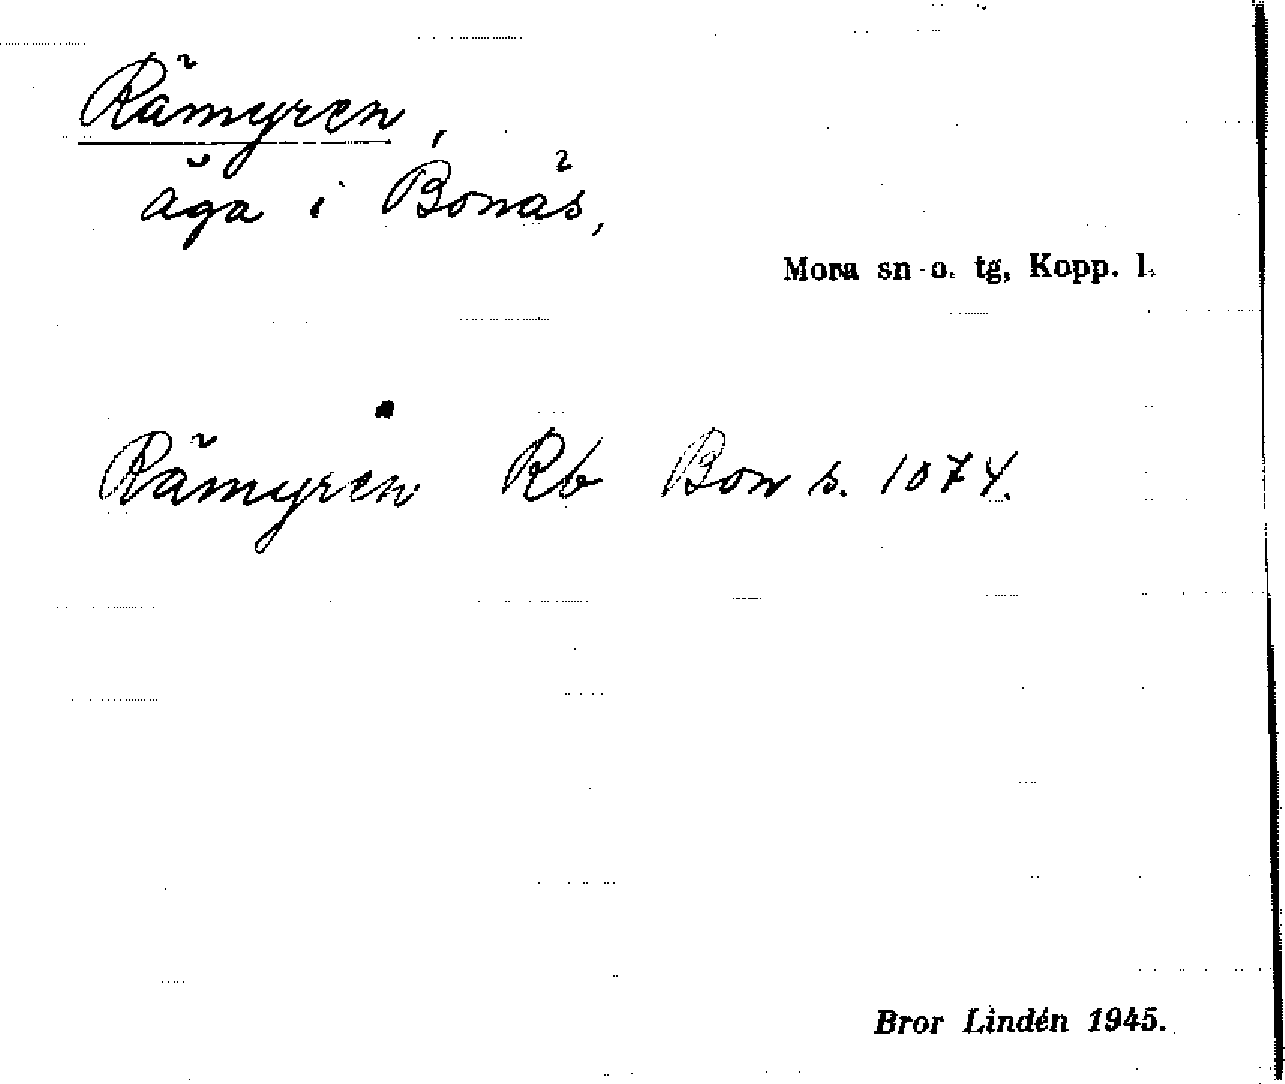 Rämyren,
äga i Bonäs,
Mora sn o. tg, Kopp. l.
Rämyren Rb Bon s. 1074.
Bror Lindén 1945.